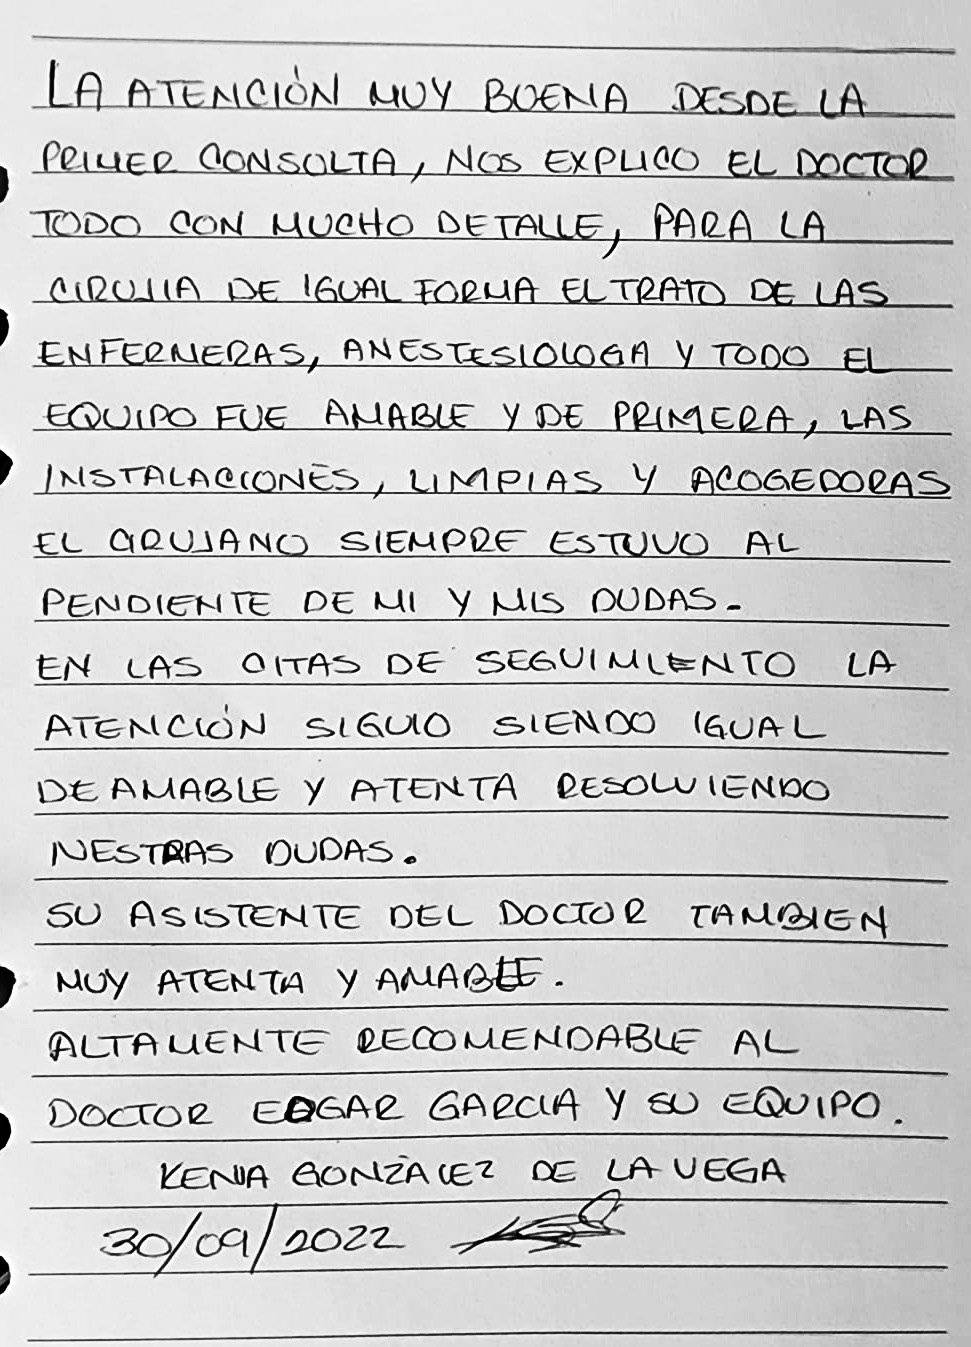 LA ATENCIÓN MUY BUENA DESDE LA
PRIMER CONSULTA, NOS EXPLICO EL DOCTOR
TODO CON MUCHO DETALLE, PARA LA
CIRUJIA DE IGUAL FORMA EL TRATO DE LAS
ENFERMERAS, ANESTESIOLOGA Y TODO EL
EQUIPO FUE AMABLE Y DE PRIMERA, LAS
INSTALACIONES, LIMPIAS Y ACOGEDORAS
EL CIRUJANO SIEMPRE ESTUVO AL
PENDIENTE DE MI Y MIS DUDAS.
EN LAS CITAS DE SEGUIMIENTO LA
ATENCIÓN SIGUIO SIENDO IGUAL
DE AMABLE Y ATENTA RESOLVIENDO
NESTRAS DUDAS.
SU ASISTENTE DEL DOCTOR TAMBIEN
MUY ATENTA Y AMABLE.
ALTAMENTE RECOMENDABLE AL
DOCTOR EDGAR GARCIA Y SU EQUIPO.
KENIA GONZÁLEZ DE LA VEGA
30/09/2022